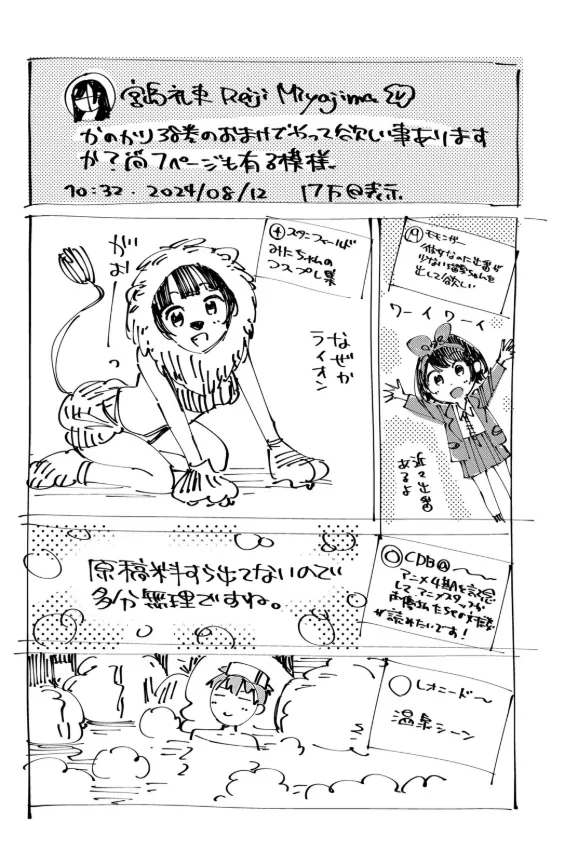 宮島礼吏 Reiji Miyajima
かのかり38巻のおまけでやって欲しい事あります
か？尚7ページも有る模様。
10:32・2024/08/12 17万の表示
スタンフィールド
みにちゃんの
コスプレ集
がおー
なぜか
ライオン
モモンガー
彼女なのに出番が
少ない瑠夏ちゃんを
出して欲しい
ワーイワーイ
近々出番
あるよ
原稿料すら出てないので
多分無理ですね。
CDB@
アニメ4期Aを記念
してアニメスタッフか
声優さんたちの対談
が読みたいです！
レオニード〜
温泉シーン